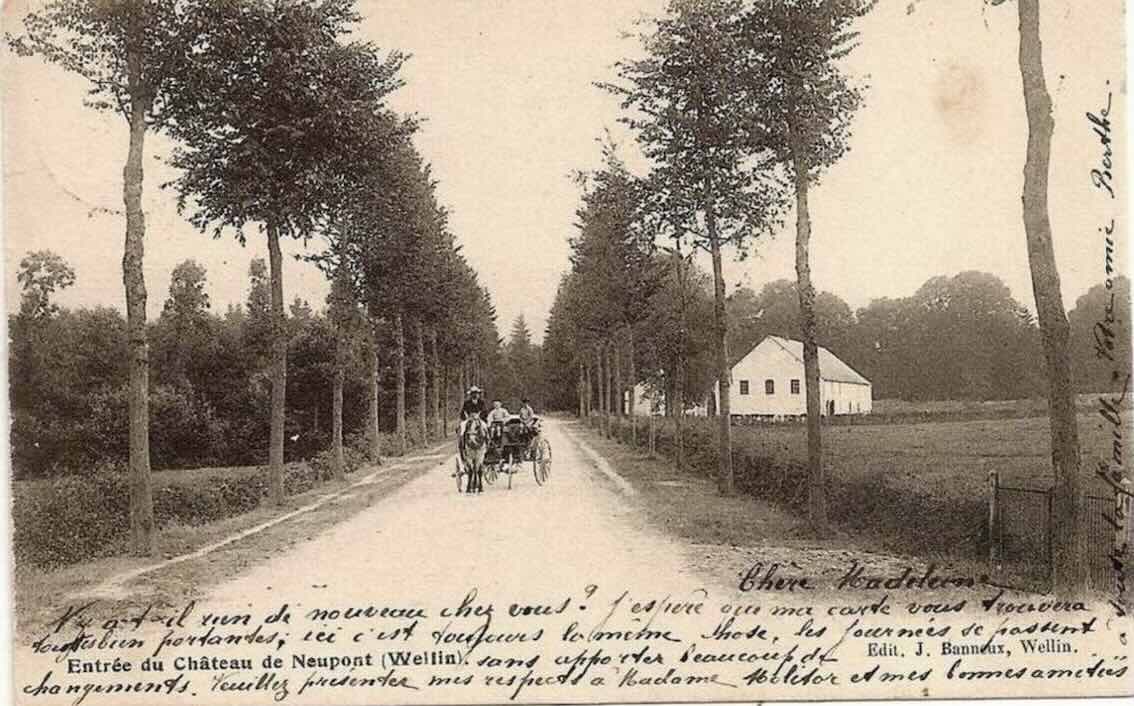 Chère Madeleine
N'y a-t-il rien de nouveau chez vous? J'espère que ma carte vous trouvera
toutes bien portantes; ici c'est toujours la même chose, les journées se passent
Entrée du Château de Neupont (Wellin).
sans apporter beaucoup de
Edit. J. Banneux, Wellin.
changements. Veuillez présenter mes respects à Madame Molitor et mes bonnes amitiés
à toute la famille. Votre amie Berthe.